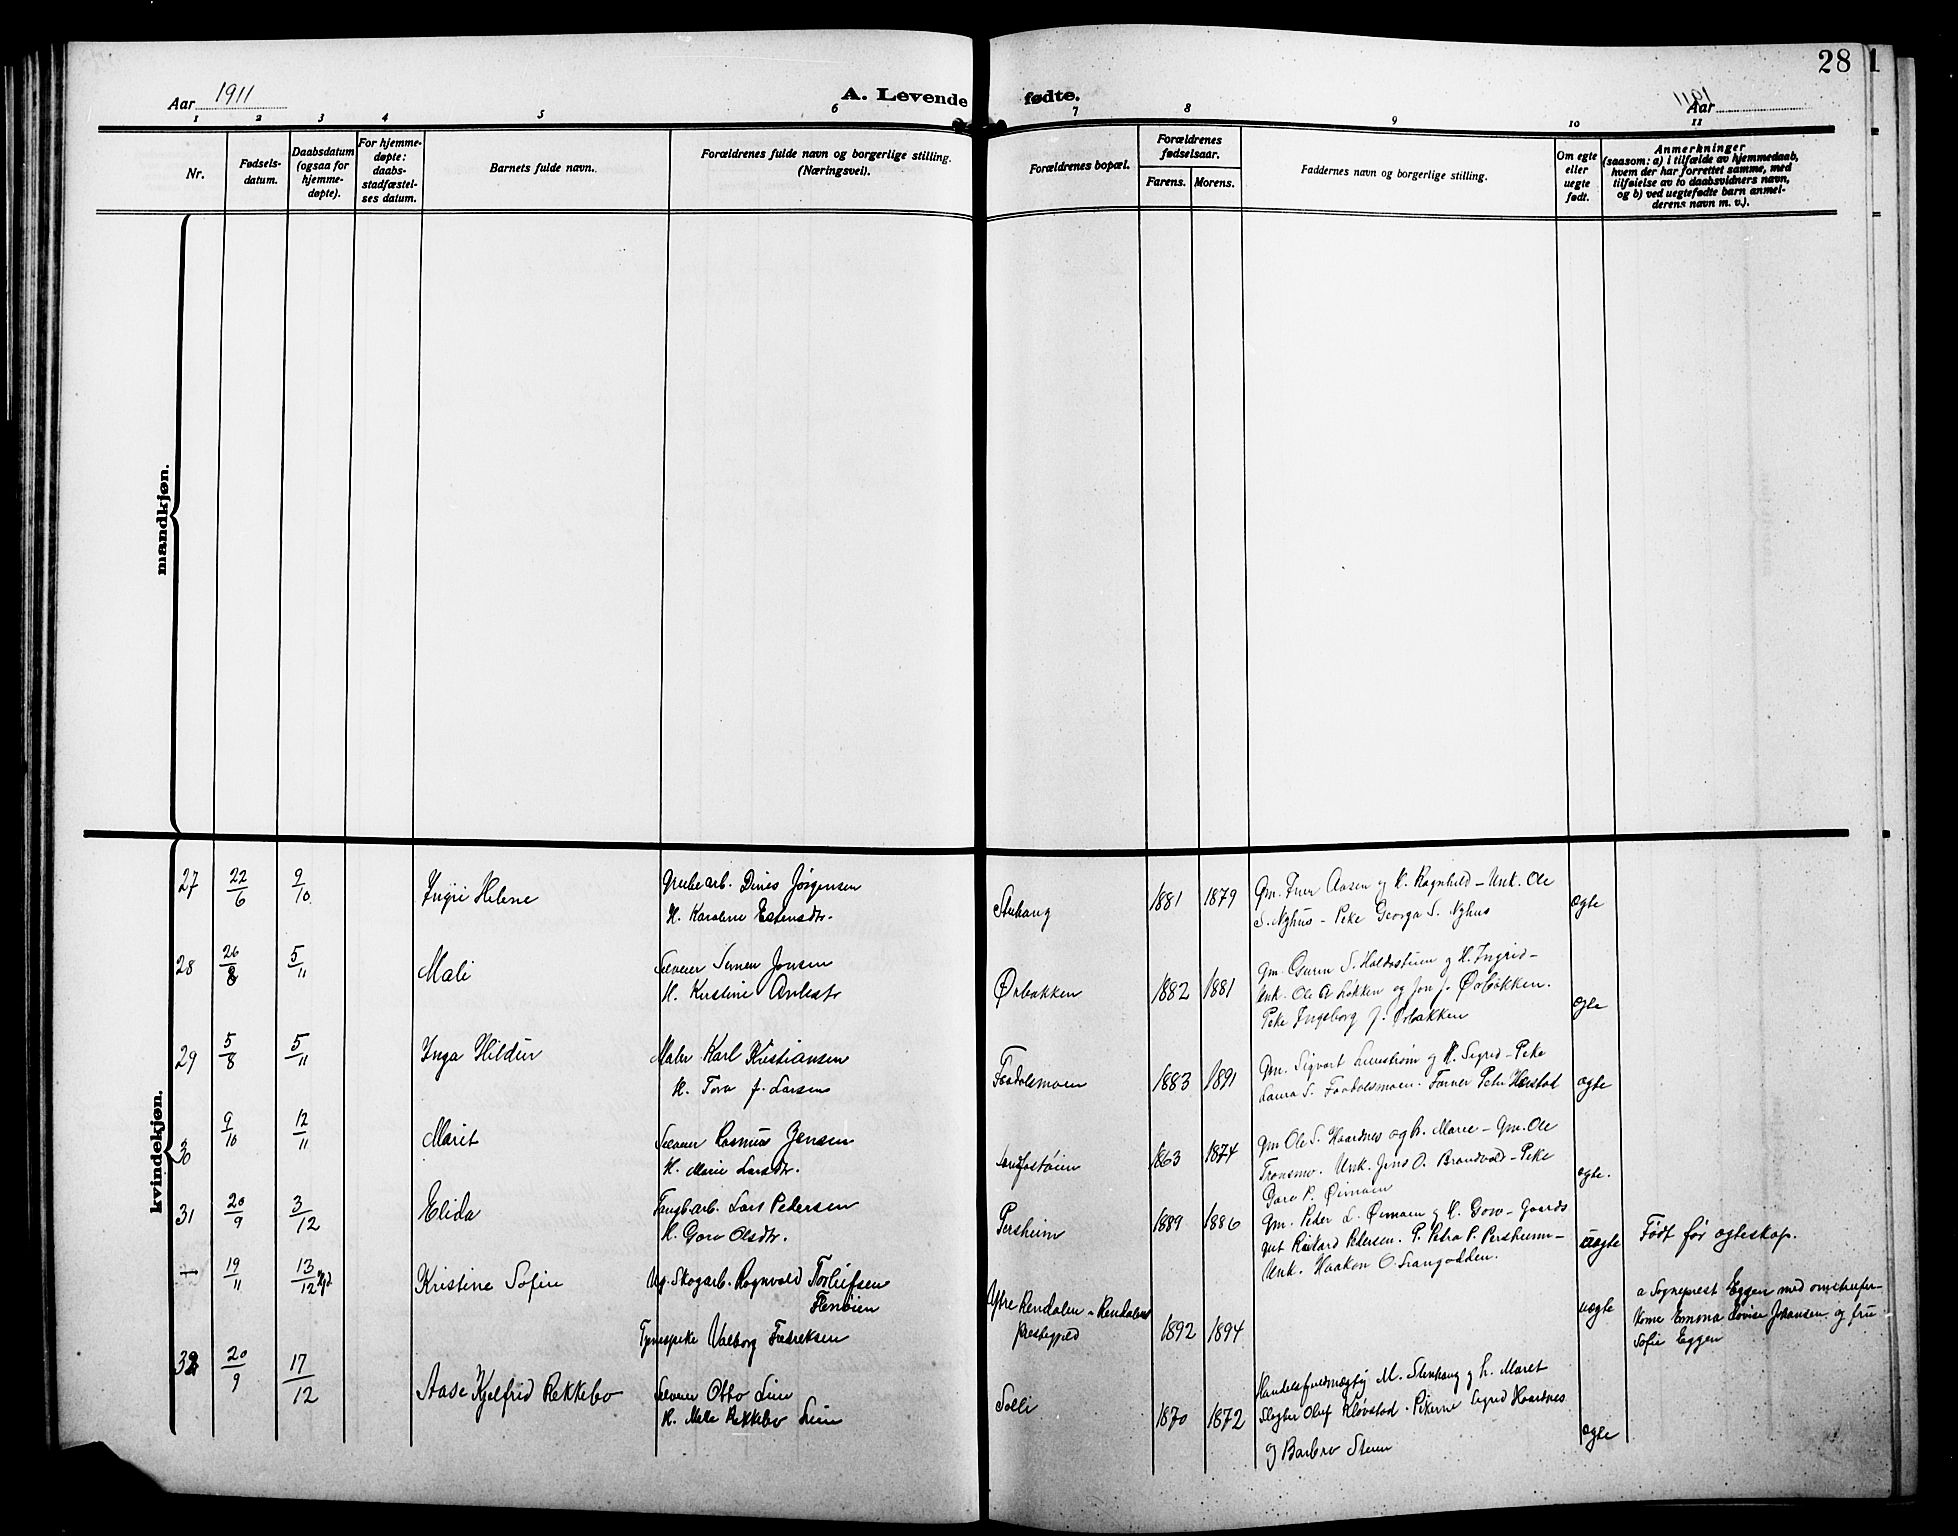 28 1
Aar 1911
A. Levende fødte.
1911 Aar
1 2 3 4 5 6 7 8 9 10 11
Nr.
Fødsels-
datum.
Daabsdatum
(ogsaa for
hjemme-
døpte).
For hjemme-
døpte:
daabs-
stadfæstel-
ses datum.
Barnets fulde navn.
Forældrenes fulde navn og borgerlige stilling.
(Næringsvei).
Forældrenes bopæl.
Forældrenes
fødselsaar.
Farens. Morens.
Faddernes navn og borgerlige stilling.
Om egte
eller
uegte
født.
Anmerkninger
(saasom: a) i tilfælde av hjemmedaab,
hvem der har forrettet samme, med
tilføielse av to daabsvidners navn,
og b) ved uegtefødte barn anmel-
derens navn m. v.).
mandkjøn.
kvindekjøn.
27 22/6 9/10 Yngri Helene
Grubearb. Dines Jörgensen
H. Karoline Estensdtr.
Stuhaug 1881 1879
Gm. Iver Aasen og H. Ragnhild – Unk. Ole
S. Nyhus – Pike Georga S. Nyhus
ægte
28 26/8 5/11 Mali
Selveier Simen Jonsen
H. Kirstine
Ørbakken 1882 1881
Gm. S. Holdostuen og H. Ingrid –
Unk. Ole A Løkken og Jon J. Ørbakken.
Pike Ingeborg J. Ørbakken
ægte
29 5/8 5/11 Ynga Hildur
Maler Karl Kristiansen
H. Tora J. Larsen
Faadalsmoen 1883 1891
Gm. Sigvart og H. Sigrid – Pike
Laura S. Faadalsmoen. Farver Peter
ægte
30 9/10 12/11 Marit
Selveier Rasmus Jensen
H. Marie Larsdtr.
1863 1874
Gm Ole S. Haardnes og h. Marie – Gm. Ole
Tronsmo. Unk. Jens O. Brandvold – Pike
Goro P. Øimoen
ægte.
31 20/9 3/12 Elida
Lars Pedersen
H. Goro Olsdtr.
Persheim 1889 1886
Gm. Peder L. Øimoen og H. Goro – Gaards
gut Rikard Pedersen. P. Petra P. Persheim –
Unk. Haakon O.
uægte
Født før ægteskap.
– 19/11 13/12 Kristine Sofie
Ug. Skogarb. Ragnvald Torleifsen
Flenøien
Tjenespike Valborg Fredriksen
Ytre Rendalen – Rendalens
prestegjeld 1892 1894
uægte
a Sogneprest Eggen med omstreifer-
kone Emma Lovise Johansen og fru
Sofie Eggen
32 20/9 17/12 Aase Kjelfrid Rekkebo
Selveier Otto Lien
H. Mille Rekkebo Lien
Solli 1870 1872
Handelsfuldmægtig M. Stenhaug og h. Maret
Slagter Oluf Kløvstad. Pikerne Sigrid Haardnes
og Barbro Steen
ægte